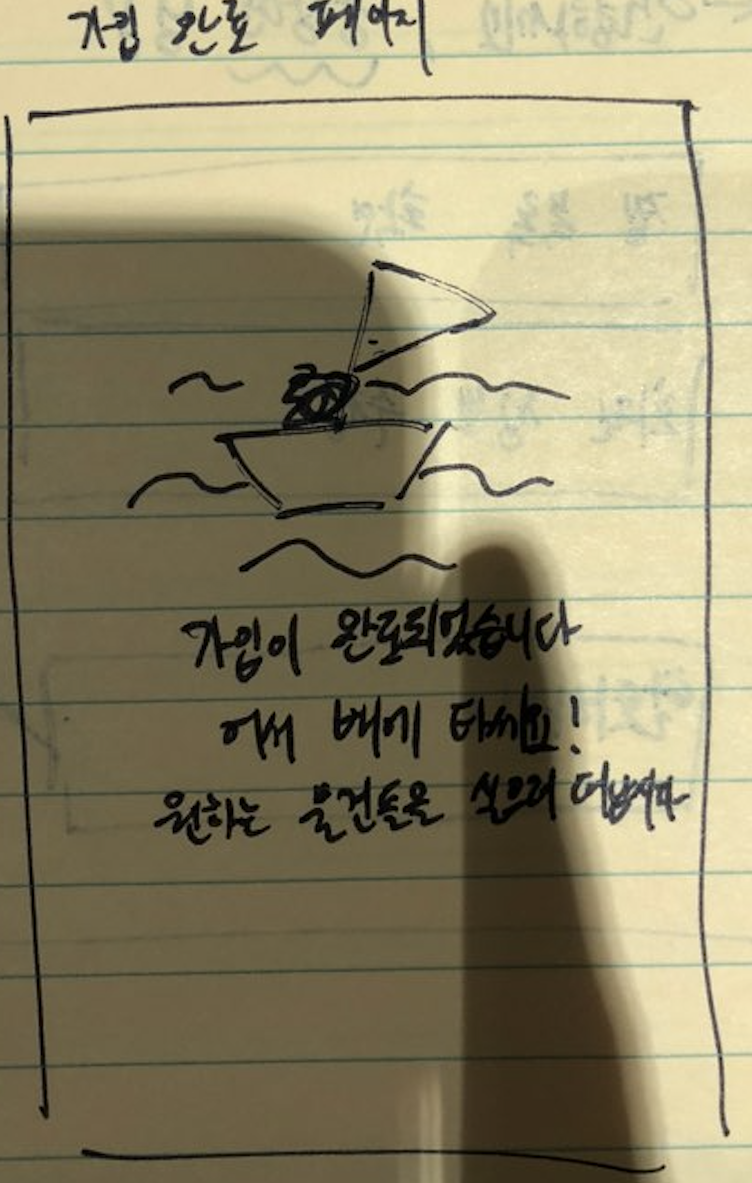 가입 완료 페이지
가입이 완료되었습니다
어서 배에 타세요!
원하는 물건들을 실으러 떠납시다